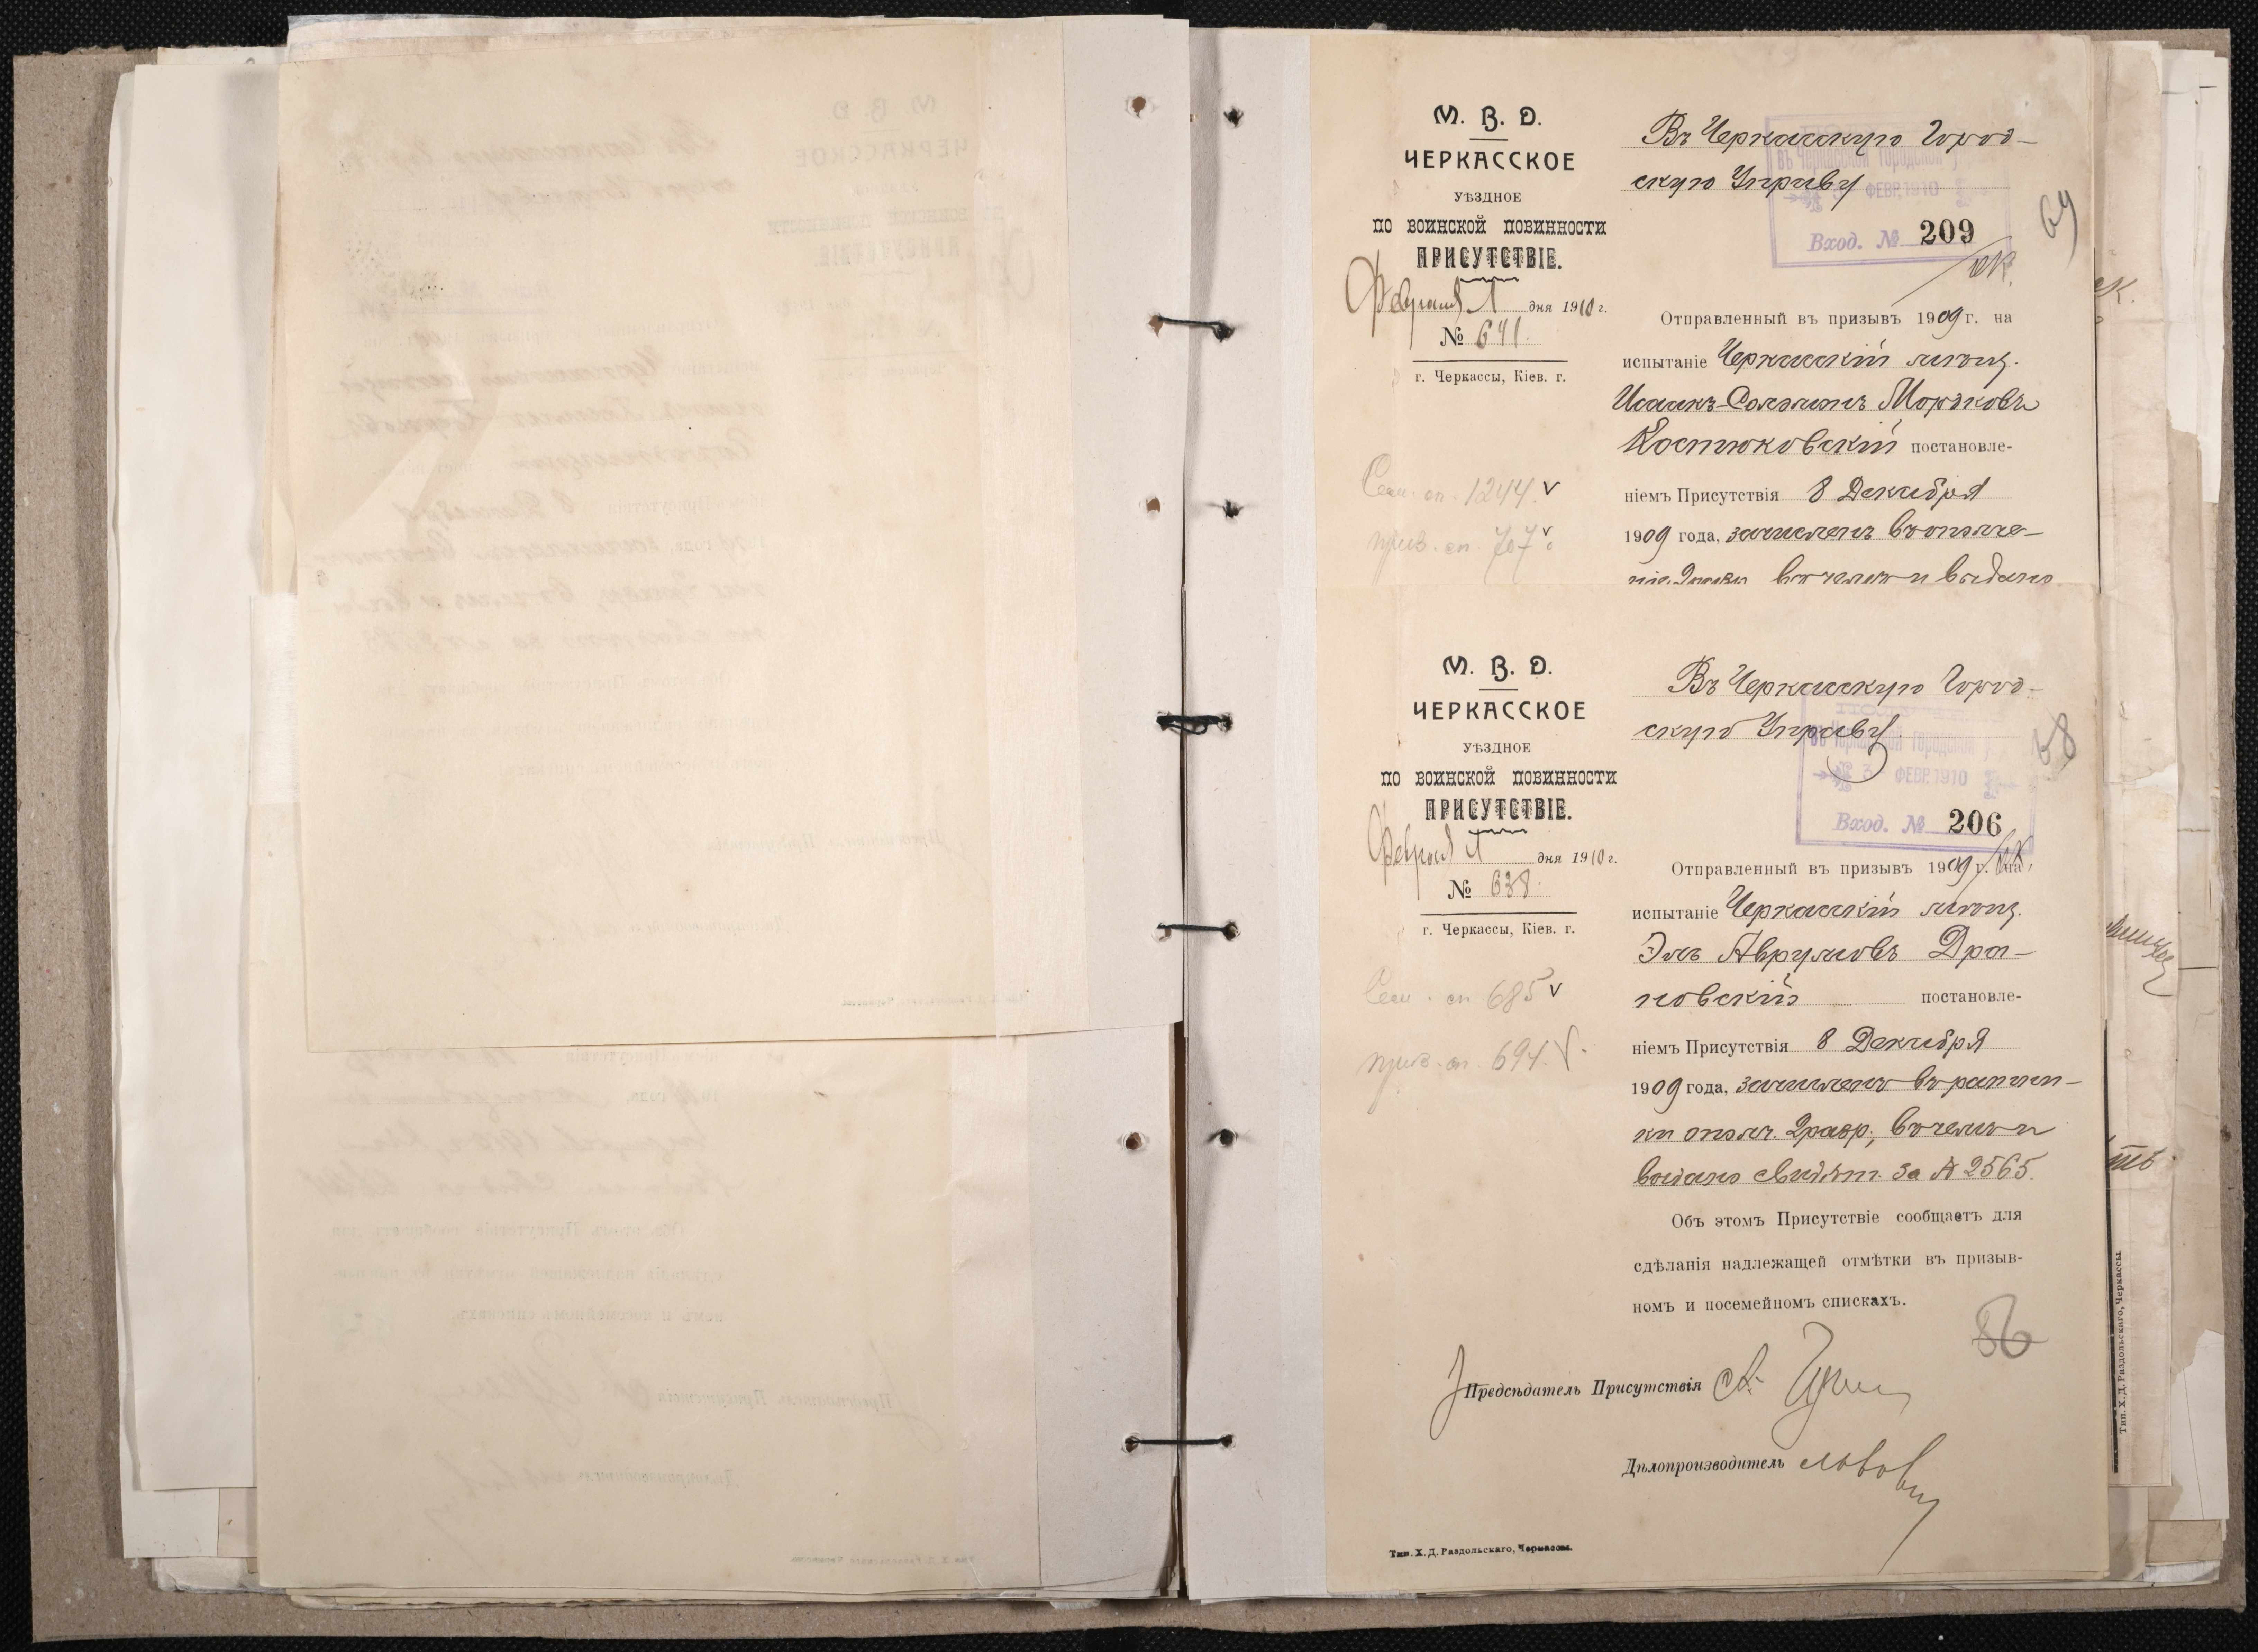 М. В. Д.
ЧЕРКАССКОЕ
УѢЗДНОЕ
ПО ВОИНСКОЙ ПОВИННОСТИ
ПРИСУТСТВІЕ.
Февраля 1 дня 1910 г.
№ 641.
г. Черкассы, Кіев. г.
Сем. сп. 1244. v
приз. сп. 707 v
Въ Черкасскую Город-
скую Управу
въ Черкасской Городской
ФЕВР. 1910
Вход. № 209
69
Отправленный въ призывъ 1909 г. на
испытаніе Черкасскій мѣщ.
Исаакъ-Соломонъ Мордковъ
Костюковскій постановле-
ніемъ Присутствія 8 Декабря
1909 года, зачисленъ въ ополче-
въ чемъ и выдано
М. В. Д.
ЧЕРКАССКОЕ
УѢЗДНОЕ
ПО ВОИНСКОЙ ПОВИННОСТИ
ПРИСУТСТВІЕ.
Февраля 1 дня 1910 г.
№ 638.
г. Черкассы, Кіев. г.
Сем. сп. 685 v
приз. сп. 694. v
Въ Черкасскую Город-
скую Управу.
Городской
3 ФЕВР. 1910
Вход. № 206
68
Отправленный въ призывъ 1909 г. на
испытаніе Черкасскій мѣщ.
Эль Аврумовъ Дра-
новскій постановле-
ніемъ Присутствія 8 Декабря
1909 года, зачисленъ въ ратни-
ки ополч. 2 разр., въ чемъ и
выдано свидѣт. за № 2565.
Объ этомъ Присутствіе сообщаетъ для
сдѣланія надлежащей отмѣтки въ призыв-
номъ и посемейномъ спискахъ.
86
Предсѣдатель Присутствія
Дѣлопроизводитель
Тип. Х. Д. Раздольскаго, Черкассы.
Тип. Х. Д. Раздольскаго, Черкассы.